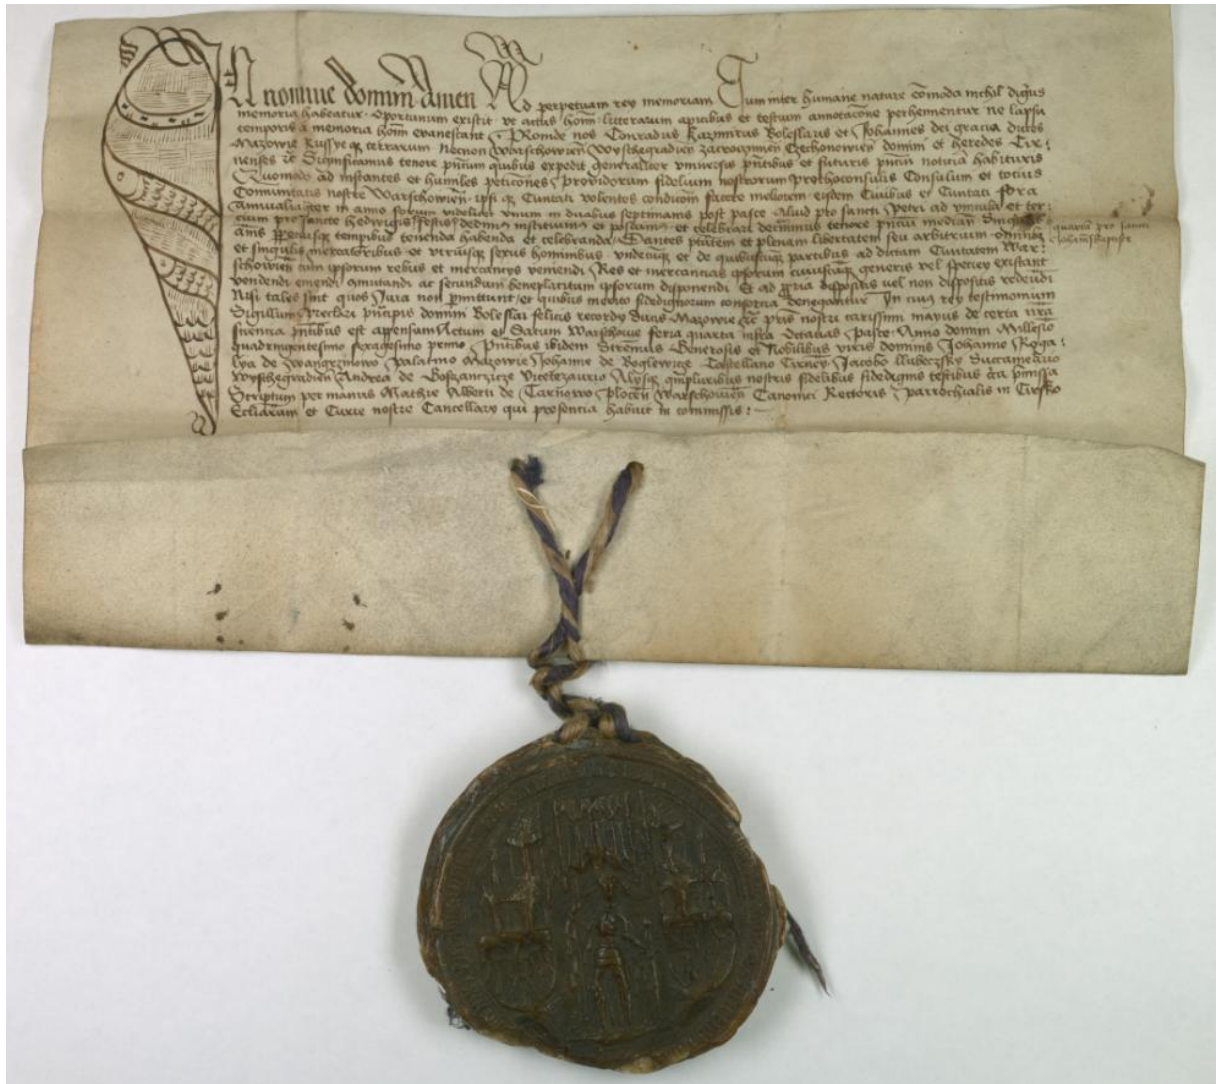 In nomine domini Amen Ad perpetuam rey memoriam Cum inter humane nature comoda nichil dignius
memoria habeatur. Oportunum existit vt actus hominum litterarum apicibus et testium annotacone perhennentur ne lapsu
temporis a memoria hoim evanescant Proinde nos Conradus Kazimirus Boleslaus et Johannes dei gracia duces
Mazovie Russyeqz terrarum Necnon Warschovien Wyschegradien Zacroczimen Czechonowien domini et heredes Cir-
nenses zc Significamus tenore pntium quibus expedit generaliter vniuersis pntibus et futuris pntium noticia habituris
Quomodo ad instantes et humiles peticones Providorum fidelium nostrorum prothoconsulis Consulum et tocius
Comunitatis nostre Warschovien. ipsi qz Ciuitati volentes condiconem facere meliorem. eisdem Ciuibus et Ciuitati fora
Annualia ter in anno forum videlicet vnum in duabus septimanis post pasce Aliud pro sancti Petri ad vincula et ter-
cium pro sancte Hedwigis festis dedimus instituimus et posuimus et celebrari decreuimus tenore pntium median Singulis
annis perpetuisqz tempibus tenenda habenda et celebranda. Dantes ptatem et plenam libertatem seu arbitrium. omnibus
quartum pro sancti
Johannis Baptiste
et singulis mercatoribus et vtriusqz sexus hominibus. vndecuqz et de quibuscuqz partibus ad dictam Ciuitatem War-
schovien cum ipsorum rebus et mercanciis veniendi Res et mercancias ipsorum cuiuscuqz generis vel speciey existant
vendendi emendi comutandi ac secundum beneplacitum ipsorum disponendi Et ad propria dispositis vel non dispositis redeundi
Nisi tales sint quos Jura non permittunt et quibus merito fidedignorum consorcia denegantur In cuius rey testimonium
Sigillum Preclari principis domini Boleslai felicis recordy ducis Mazovie zc pris nostri carissimi maius de certa nra
sciencia pntibus est appensum Actum et Datum Warschovie feria quarta infra Octauas Pasce. Anno domini Millesio
quadringentesimo sexagesimo primo Pntibus ibidem Strennuis Generosis et Nobilibus viris dominis Johanne Roga-
lya de Palatino Mazovie Johanne de Boglewicze Castellano Cirnen Jacobo Subcamerario
Wyschegradien Andrea de Vicethezaurio Alysqz qmpluribus nostris fidelibus fidedignis testibus circa pmissa
Scriptum per manus Mathie Alberti de Plocen Warschovien Canonici Rectoris parrochialis in Cirsko
Ecliarum et Curie nostre Cancellary qui presencia habuit in commissis:-